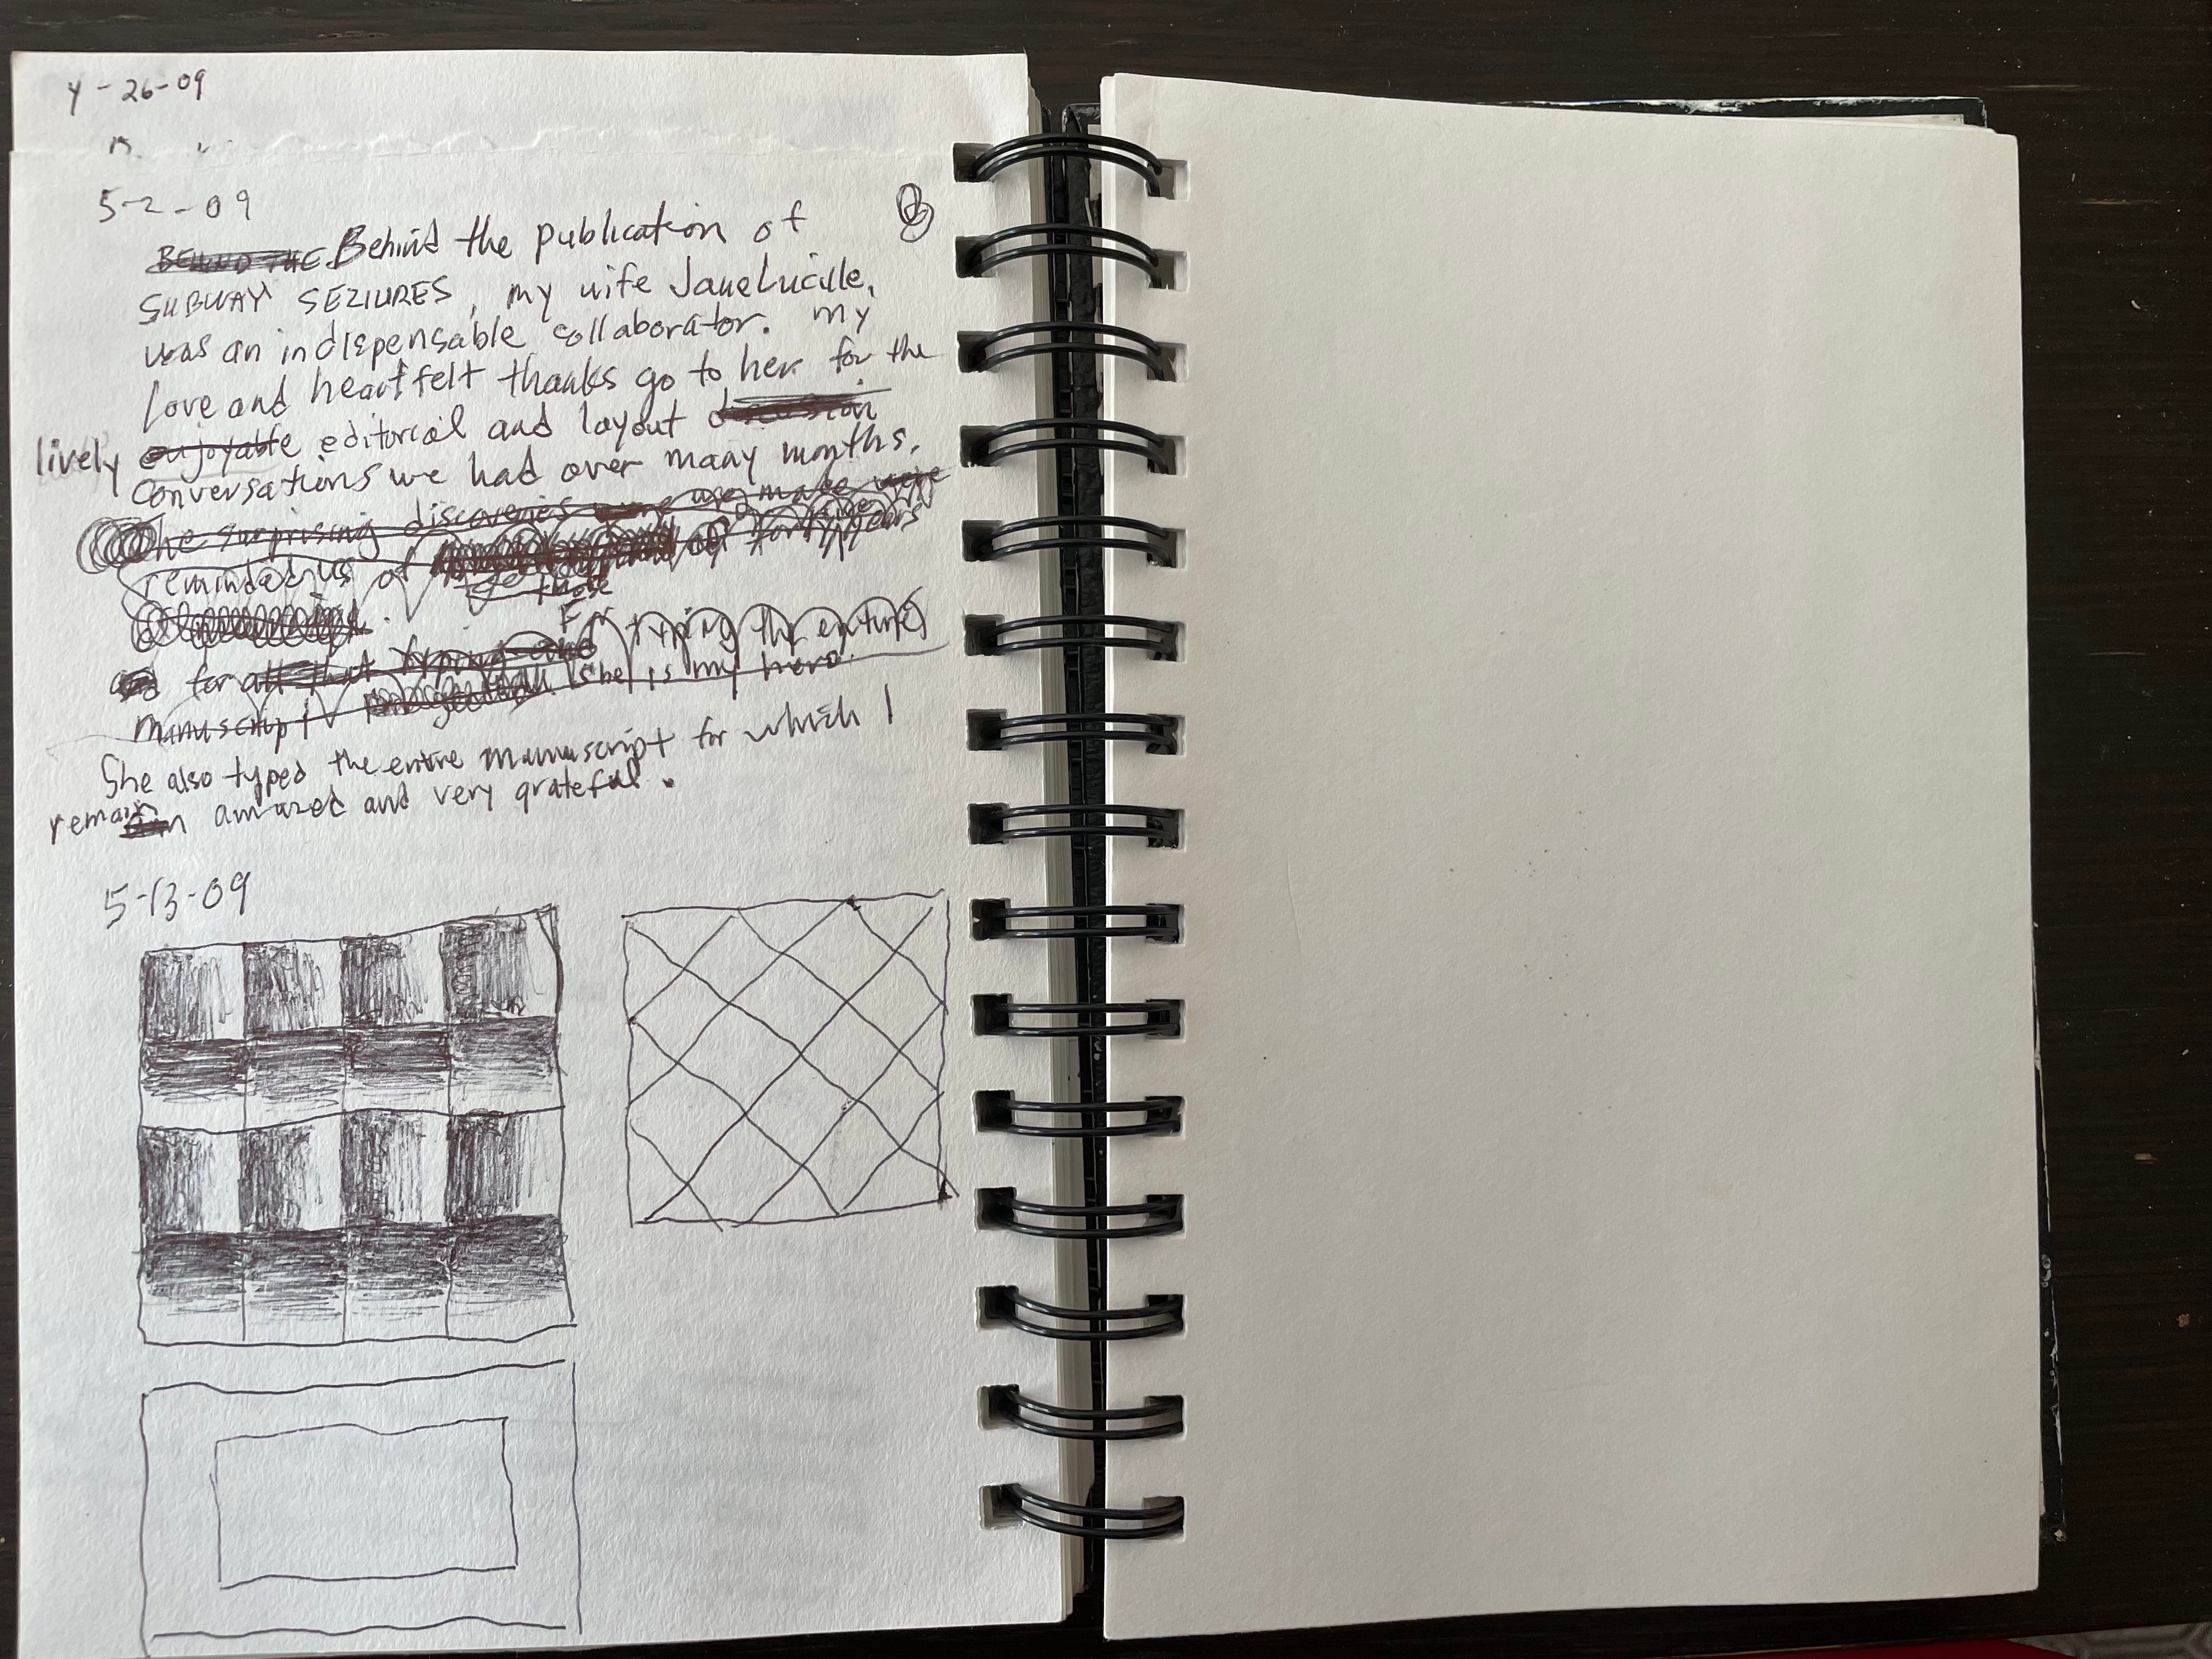 4-26-09
5-2-09
BEHIND THE Behind the publication of
SUBWAY SEZIURES, my wife Jane Lucille,
was an indispensable collaborator. My
love and heartfelt thanks go to her for the
lively enjoyable editorial and layout discussion
conversations we had over many months.
The surprising discoveries we made were
reminded us of those of forty years
For typing the entire
for all that typing and she is my hero.
manuscript
She also typed the entire manuscript for which I
remain amazed and very grateful.
5-13-09